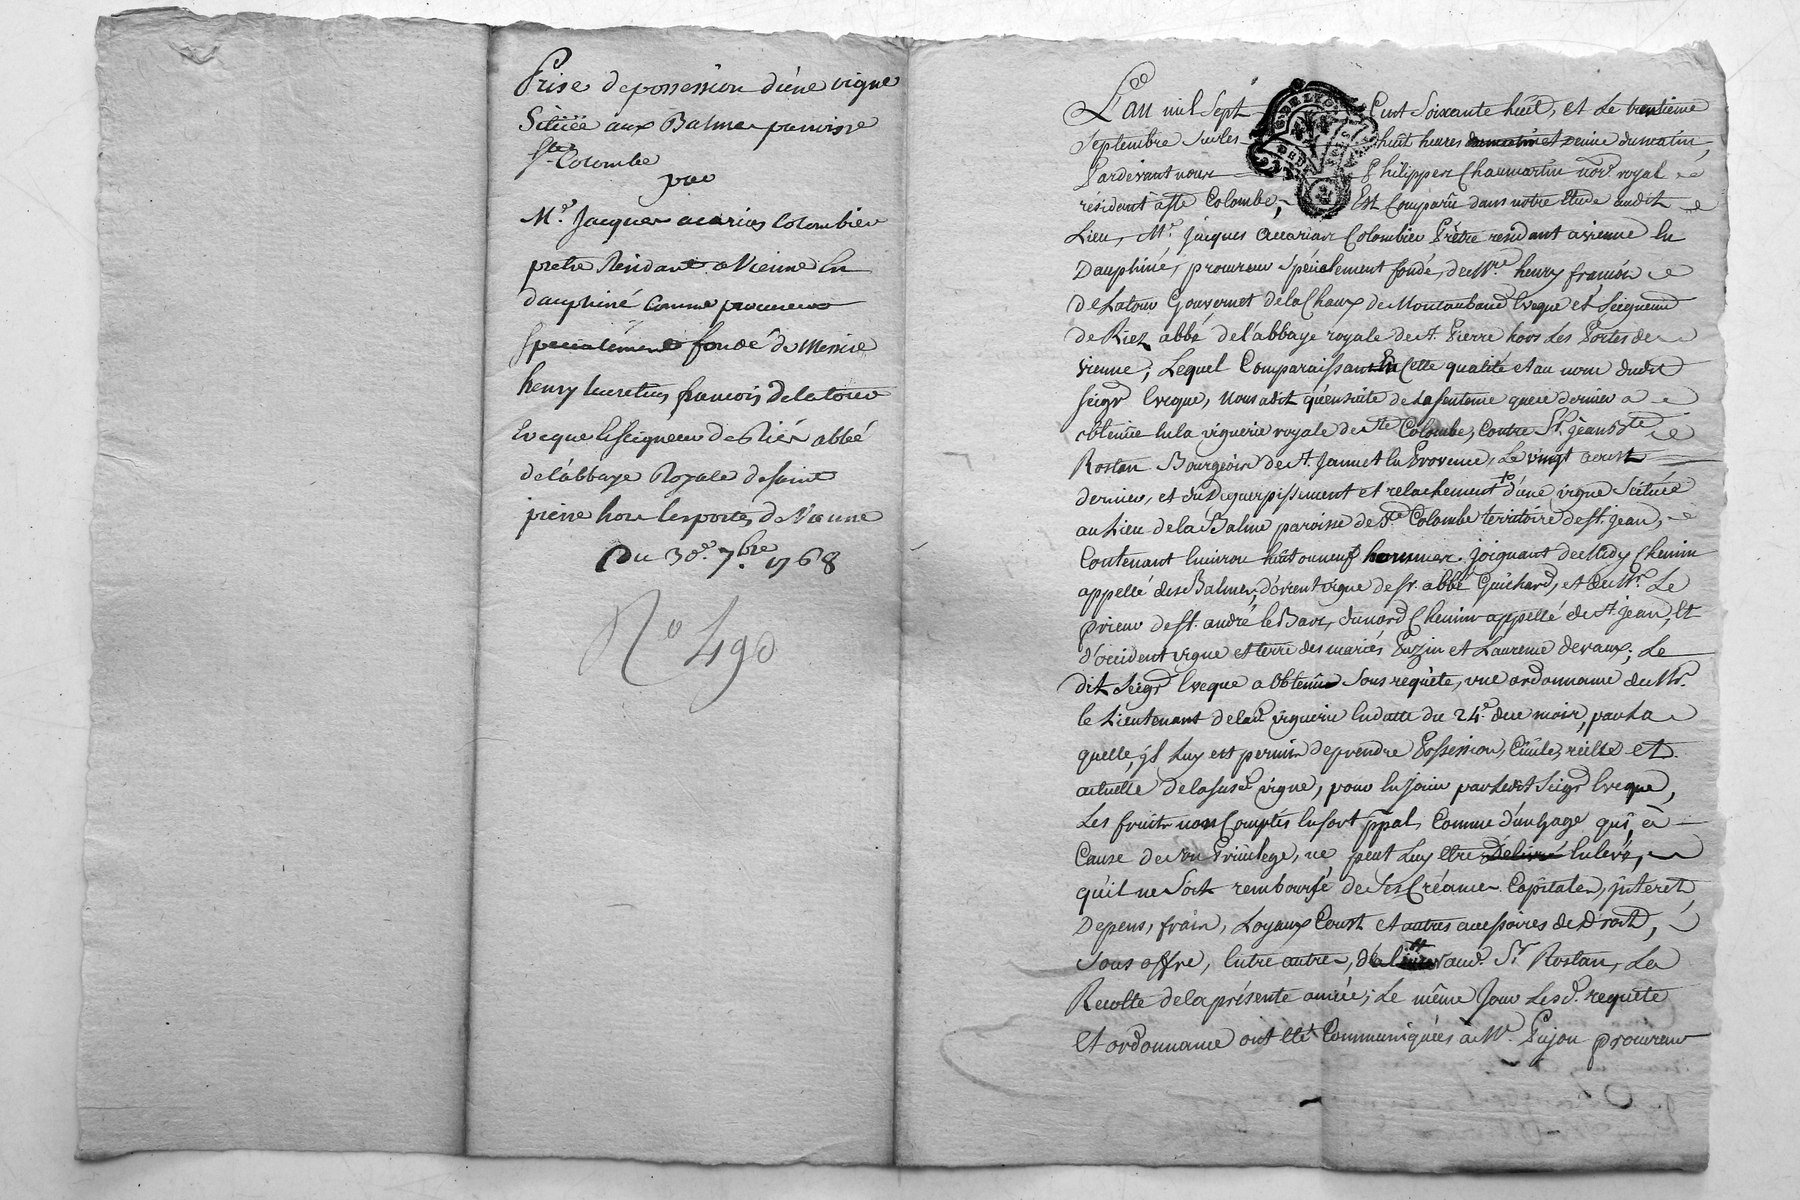 Prise de possession d'une vigne
Située aux Balmes paroisse
Ste Colombe
par
Mr. Jacques acarias Colombier
pretre Residant a Vienne en
dauphiné comme procureur
specialement fondé de Messire
henry lucretius francois de latour
Eveque & seigneur de Riés abbé
de l'abbaye Royale de saint
pierre hors les portes de Vienne
Du 30e. 7bre. 1768
No 490
L'an mil Sept Cent Soixante huit, et Le trentieme
Septembre sur les huit heures du matin,
Pardevant nous Philippes Chaumartin nore. royal
résidant à Ste Colombe, Est Comparu dans notre Etude audit
Lieu, Mr. Jacques Accarias Colombier Prêtre residant a vienne En
Dauphiné, procureur spécialement fondé, de Mre henry françois
de Latour Gouvernet de la Chaux de Montauband Eveque et Seigneur
de Riez abbé de l'abbaye royale de st. Pierre hors Les Portes de
vienne, Lequel Comparaissant En Cette qualité et au nom dudit
Seigr Eveque, Nous a dit qu'ensuite de La sentence que ce dernier a
obtenüe En la viguerie royale de Ste Colombe, Contre Sr. jean bte
Rostan Bourgeois de st. Jannet En Provence, Le vingt aoust
dernier, et du Deguerpissement et relachement d'une vigne Scituée
au Lieu de la Balme paroisse de Ste Colombe territoire de st. jean,
Contenant Environ huit ou neuf hommées. joignant de Midy Chemin
appellé des Balmes, d'orient vigne de sr. abbé Guichard, et de Mr. Le
prieur de st. andré le Bas, du nord Chemin appellé de st. jean, Et
d'occident vigne et terre des mariés Puzin et Laurence devaux; Le
dit Seigr Eveque a obtenu Sous requête, une ordonnance de Mr.
le Lieutenant de lad. viguerie En datte du 24e. de ce mois, par La
quelle, il Luy est permis de prendre Possession, Civile, réelle et
actuelle de la susd. vigne, pour En Jouir par Ledit Seigr Eveque,
Les fruits non Comptés En sort ppal, Comme d'un gage qui, à
Cause de son Privilege, ne peut Luy être Délivré Enlevé,
qu'il ne Soit remboursé de Ses Créances Capitales, jnteret,
Depens, frais, Loyaux Coust et autres accessoires de Droit,
Sous offre, Entre autre, de aud. Sr Rostan, La
Recolte de la présente année; Le même Jour Lesd. requête
Et ordonnance ont été Communiquées à Me. Pujon procureur